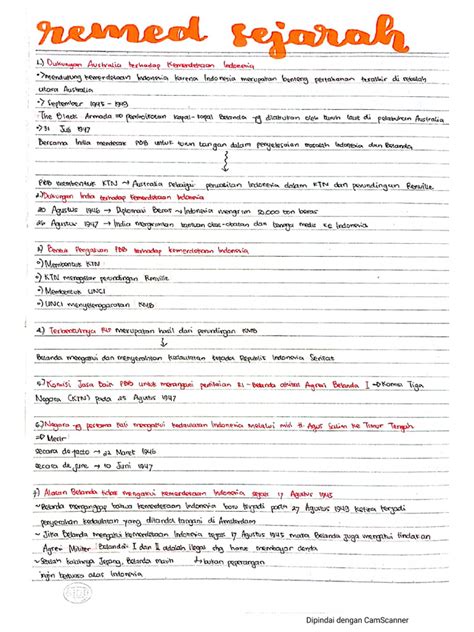 remed sejarah
1.) Dukungan Australia terhadap Kemerdekaan Indonesia
•) mendukung kemerdekaan Indonesia karena Indonesia merupakan benteng pertahanan terakhir di sebelah
utara Australia
•) September 1945 - 1949
The Black Armada => pemboikotan kapal-kapal Belanda yg dilakukan oleh buruh laut di pelabuhan Australia
•) 31 Juli 1947
Bersama India mendesak PBB untuk turun tangan dalam penyelesaian masalah Indonesia dan Belanda
PBB membentuk KTN → Australia sebagai perwakilan Indonesia dalam KTN dan perundingan Renville
2.) Dukungan India terhadap Kemerdekaan Indonesia
20 Agustus 1946 → Diplomasi Beras → Indonesia mengirim 50.000 ton beras
26 Agustus 1947 → India mengirimkan bantuan obat-obatan dan tenaga medis ke Indonesia
3.) Bentuk Pengakuan PBB terhadap kemerdekaan Indonesia
•) Membentuk KTN
•) KTN menggelar perundingan Renville
•) Membentuk UNCI
•) UNCI menyelenggarakan KMB
4.) Terbentuknya RIS merupakan hasil dari perundingan KMB
Belanda mengakui dan menyerahkan kedaulatan kepada Republik Indonesia Serikat
5.) Komisi Jasa Baik PBB untuk menangani pertikaian RI - Belanda akibat Agresi Belanda I → Komisi Tiga
Negara (KTN) pada 25 Agustus 1947
6.) Negara yg pertama kali mengakui kedaulatan Indonesia melalui misi H. Agus Salim ke Timur Tengah
=> Mesir
secara de facto → 22 Maret 1946
secara de jure → 10 Juni 1947
7.) Alasan Belanda tidak mengakui kemerdekaan Indonesia sejak 17 Agustus 1945
~ Belanda menganggap bahwa kemerdekaan Indonesia baru terjadi pada 27 Agustus 1949 ketika terjadi
penyerahan kedaulatan yang ditanda tangani di Amsterdam
~ Jika Belanda mengakui kemerdekaan Indonesia sejak 17 Agustus 1945 maka Belanda juga mengakui tindakan
Agresi Militer Belanda I dan II adalah ilegal dng harus membayar denda
~ Setelah kalahnya Jepang, Belanda masih bukan peperangan
ingin berkuasa atas Indonesia
Dipindai dengan CamScanner